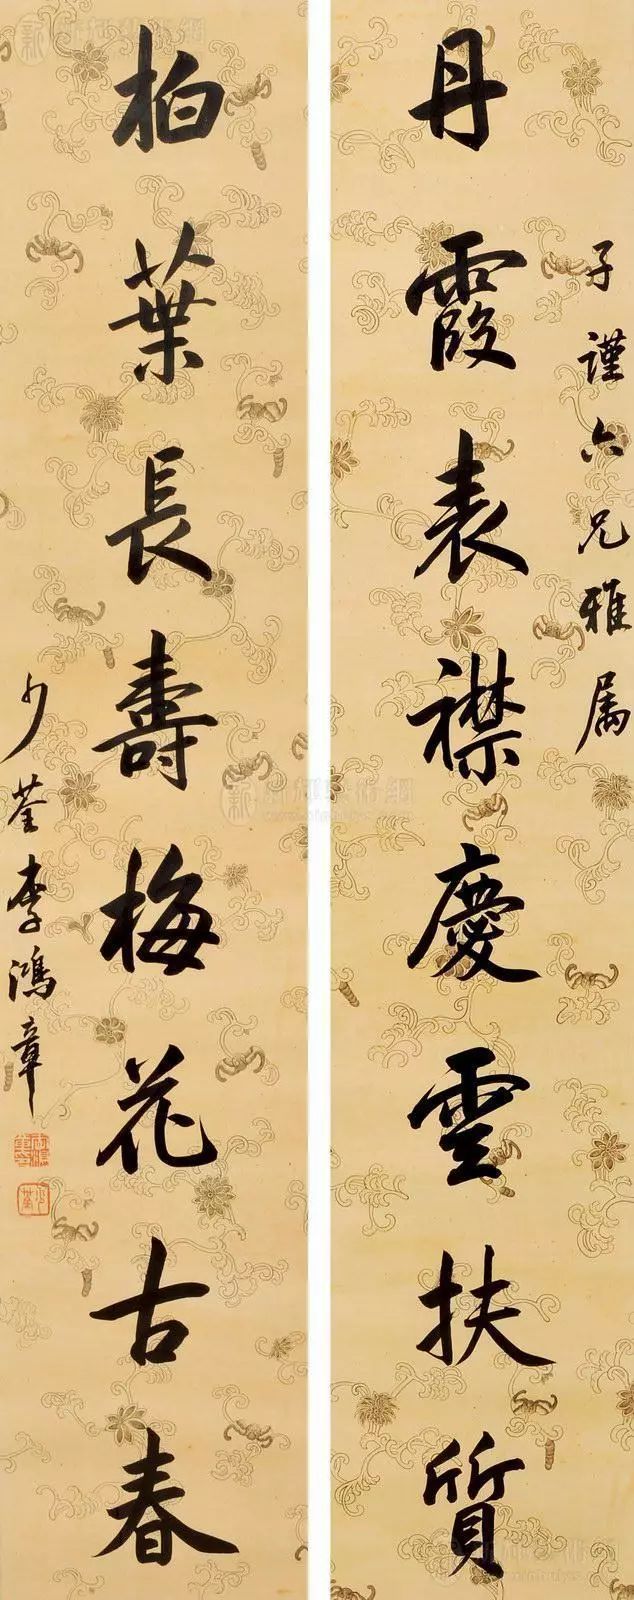 子谨六兄雅属
丹霞表襟慶雲扶質
柏葉長壽梅花古春
少荃李鴻章
少荃